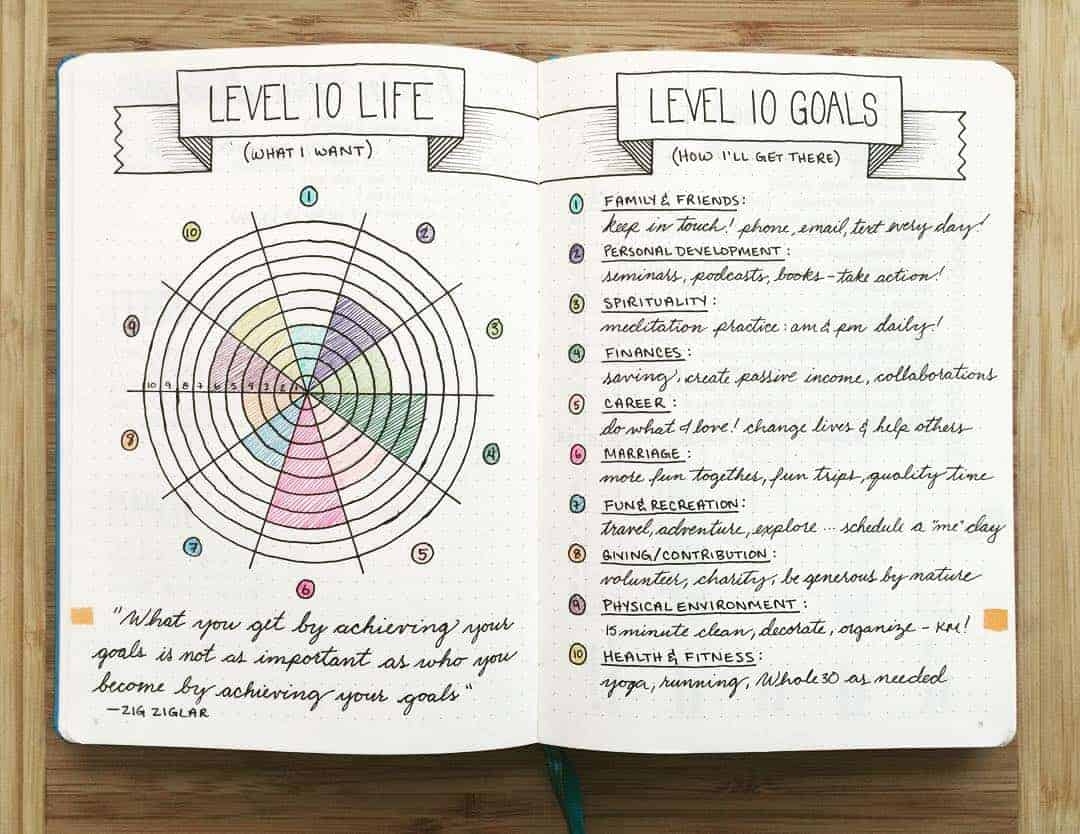 LEVEL 10 LIFE
(WHAT I WANT)
1
2
3
4
5
6
7
8
9
10
10 9 8 7 6 5 4 3 2 1
"What you get by achieving your
goals is not as important as who you
become by achieving your goals"
—ZIG ZIGLAR
LEVEL 10 GOALS
(HOW I'LL GET THERE)
1 FAMILY & FRIENDS:
keep in touch! phone, email, text every day!
2 PERSONAL DEVELOPMENT:
seminars, podcasts, books - take action!
3 SPIRITUALITY:
meditation practice: am & pm daily!
4 FINANCES:
saving, create passive income, collaborations
5 CAREER:
do what I love! change lives & help others
6 MARRIAGE:
more fun together, fun trips, quality time
7 FUN & RECREATION:
travel, adventure, explore ... schedule a "me" day
8 GIVING/CONTRIBUTION:
volunteer, charity, be generous by nature
9 PHYSICAL ENVIRONMENT:
15 minute clean, decorate, organize - KM!
10 HEALTH & FITNESS:
yoga, running, Whole30 as needed